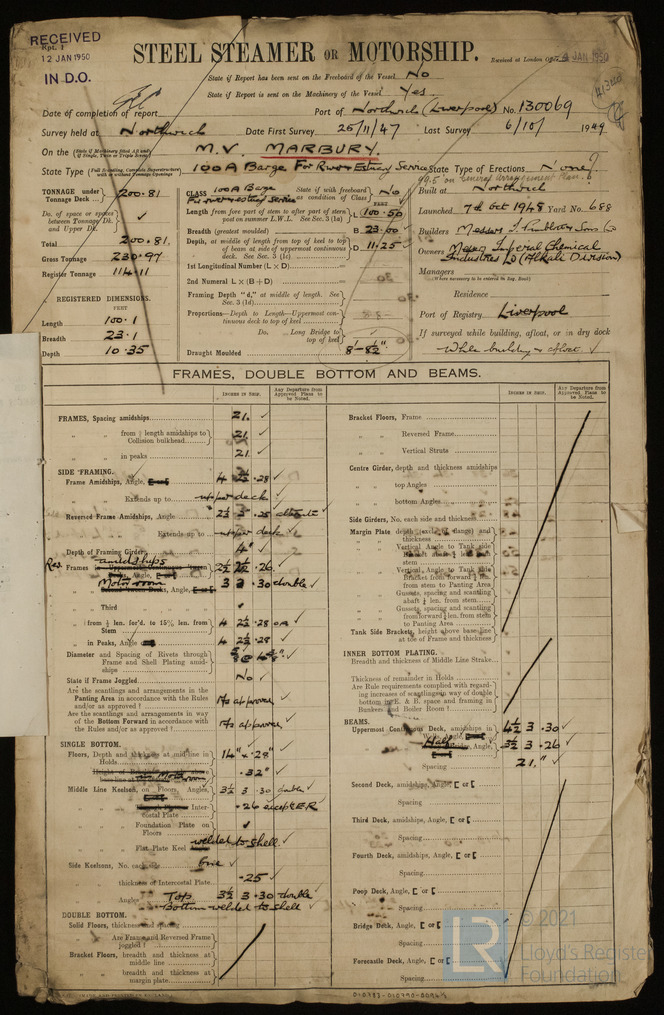 RECEIVED
Rpt. 1
12 JAN 1950
IN D.O.
STEEL STEAMER OR MOTORSHIP.
Received at London Office 4 JAN 1950
State if Report has been sent on the Freeboard of the Vessel No
State if Report is sent on the Machinery of the Vessel Yes.
Date of completion of report
Port of Northwich (Liverpool) No. 130069
Survey held at Northwich Date First Survey 25/11/47 Last Survey 6/10/ 1949
On the (State if Machinery fitted Aft and if Single, Twin or Triple Screw) M.V. MARBURY.
State Type 100A Barge For River & Estuary Service State Type of Erections None?
TONNAGE under Tonnage Deck 200.81
Do. of space or spaces between Tonnage Dk. and Upper Dk. ✓
Total 200.81
Gross Tonnage 230.97
Register Tonnage 114.11
REGISTERED DIMENSIONS.
FEET
Length 100.1
Breadth 23.1
Depth 10.35
CLASS 100A Barge For river & estuary service State if with freeboard as condition of Class No
FEET
Length from fore part of stem to after part of stern post on summer L.W.L. See Sec. 3 (1a) L 100.50
Breadth (greatest moulded) B 23.00
Depth, at middle of length from top of keel to top of beam at side of uppermost continuous deck. See Sec. 3 (1c) D 11.25
1st Longitudinal Number (L × D)
2nd Numeral L × (B + D)
Framing Depth "d," at middle of length. See Sec. 3 (1d)
Proportions—Depth to Length—Uppermost continuous deck to top of keel
Do. Long Bridge to top of keel
Draught Moulded 8'-8½"
Built at Northwich
Launched 7th Oct 1948 Yard No. 688
Builders Messrs I. Pimblott & Sons Ld
Owners Messrs Imperial Chemical Industries Ld (Alkali Division)
Managers
(Where necessary to be entered in Reg. Book)
Residence
Port of Registry Liverpool
If surveyed while building, afloat, or in dry dock
While building & afloat. ✓
FRAMES, DOUBLE BOTTOM AND BEAMS.
INCHES IN SHIP.
Any Departure from Approved Plans to be Noted.
INCHES IN SHIP.
Any Departure from Approved Plans to be Noted.
FRAMES, Spacing amidships 21. ✓
" " from ½ length amidships to Collision bulkhead 21. ✓
" " in peaks 21. ✓
SIDE FRAMING.
Frame Amidships, Angle, 4 2½ .28 ✓
" " Extends up to upper deck ✓
Reversed Frame Amidships, Angle 2½ 3 .25
" " Extends up to upper deck ✓
Depth of Framing Girder 4" ✓
Frames amidships 2½ 2½ .26. ✓
Motor room 3 3 .30 double ✓
" Third ✓
" from ½ len. for'd. to 15% len. from Stem 4 2½ .28 OA ✓
" in Peaks, Angle 4 2½ .28 ✓
Diameter and Spacing of Rivets through Frame and Shell Plating amidships
State if Frame Joggled No ✓
Are the scantlings and arrangements in the Panting Area in accordance with the Rules and/or as approved? As approved ✓
Are the scantlings and arrangements in way of the Bottom Forward in accordance with the Rules and/or as approved? As approved ✓
SINGLE BOTTOM.
Floors, Depth and thickness at mid-line in Holds 14" × .28" ✓
in Motor room .32" ✓
Middle Line Keelson, on Floors, Angles, 3½ 3 .30 double ✓
" " Intercostal Plate .26 except E.R ✓
" " Foundation Plate on Floors
" " Flat Plate Keel welded to shell ✓
Side Keelsons, No. each side One ✓
" " thickness of Intercostal Plate .25 ✓
" " Angles Top 3½ 3 .30 double
Bottom welded to shell ✓
DOUBLE BOTTOM.
Solid Floors, thickness and spacing
" " Are Frame and Reversed Frame joggled?
Bracket Floors, breadth and thickness at middle line
" " breadth and thickness at margin plate
Bracket Floors, Frame
" " Reversed Frame
" " Vertical Struts
Centre Girder, depth and thickness amidships
" " top Angles
" " bottom Angles
Side Girders, No. each side and thickness
Margin Plate depth (excl. of flange) and thickness
Tank Side Brackets, height above base line at toe of Frame and thickness
INNER BOTTOM PLATING.
Breadth and thickness of Middle Line Strake
Thickness of remainder in Holds
Are Rule requirements complied with regarding increases of scantlings in way of double bottom in E. & B. space and framing in Bunkers and Boiler Room?
BEAMS.
Uppermost Continuous Deck, amidships in Way, Angle, 4½ 3 .30 ✓
Half Angle, 3½ 3 .26 ✓
Spacing 21." ✓
Second Deck, amidships, Angle, [ or [
Spacing
Third Deck, amidships, Angle, [ or [
Spacing
Fourth Deck, amidships, Angle, [ or [
Spacing
Poop Deck, Angle, [ or [
Spacing
Bridge Deck, Angle, [ or [
Spacing
Forecastle Deck, Angle, [ or [
Spacing
LR
© 2021
Lloyd's Register
Foundation